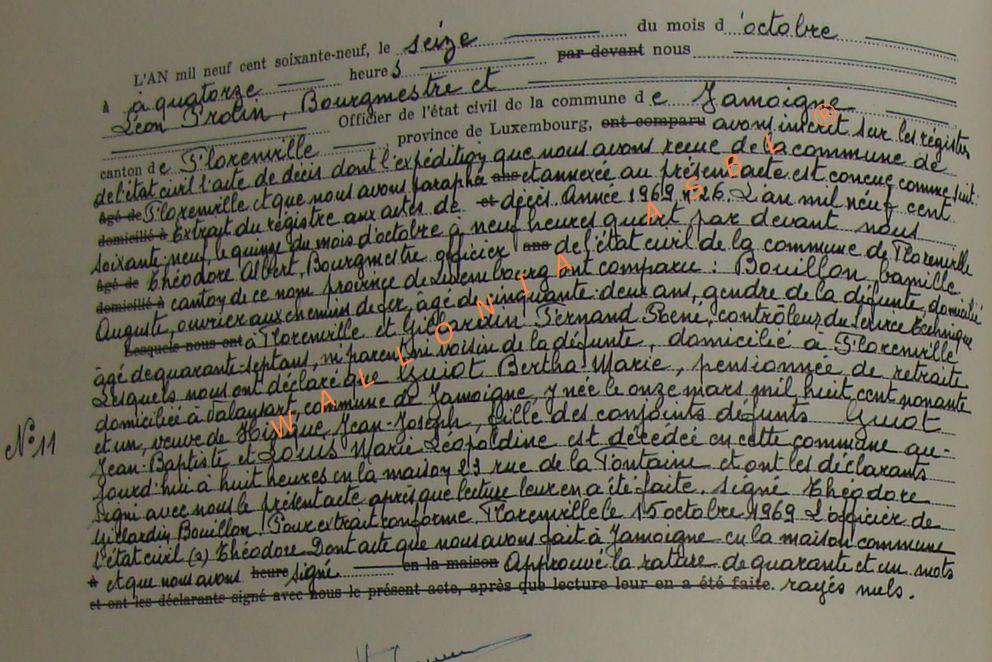 L'AN mil neuf cent soixante-neuf, le seize du mois d'octobre
à à quatorze heures par devant nous
Léon Protin, Bourgmestre et
Officier de l'état civil de la commune de Jamoigne
canton de Florenville province de Luxembourg, ont comparu avons inscrit sur les régistres
de l'état civil l'acte de décès dont l'expédition que nous avons reçue de la commune de
âgé de Florenville et que nous avons paraphé et annexée au présent acte est conçue comme suit:
domicilié à Extrait du régistre aux actes de décès. Année 1969 n° 26. L'an mil neuf cent
soixante-neuf, le quinze du mois d'octobre à neuf heures quart par devant nous
âgé de Théodore Albert, Bourgmestre officier de l'état civil de la commune de Florenville
domicilié à canton de ce nom province de Luxembourg ont comparu : Bouillon, Camille
Auguste, ouvrier aux chemins de fer, âgé de cinquante-deux ans, gendre de la défunte, domicilié
Lesquels nous ont à Florenville et Gillardin Fernand René, contrôleur du service technique
âgé de quarante-sept ans, ni parent ni voisin de la défunte, domicilié à Florenville
Lesquels nous ont déclaré que Guiot Bertha-Marie, pensionnée de retraite
domiciliée à Valansart, commune de Jamoigne, y née le onze mars mil huit cent nonante
et un, veuve de Jean-Joseph, fille des conjoints défunts Guiot
N° 11
Jean-Baptiste et Louis Marie Léopoldine est décédée en cette commune au-
jourd'hui à huit heures en la maison 23 rue de la Fontaine et ont les déclarants
signé avec nous le présent acte après que lecture leur en a été faite. signé Théodore
Gillardin Bouillon. Pour extrait conforme Florenville le 15 octobre 1969 L'officier de
l'état civil (s) Théodore Dont acte que nous avons fait à Jamoigne en la maison commune
à et que nous avons heure signé en la maison Approuvé la rature de quarante et un mots
et ont les déclarants signé avec nous le présent acte, après que lecture leur en a été faite. rayés nuls.
WALLONIA ASBL ®